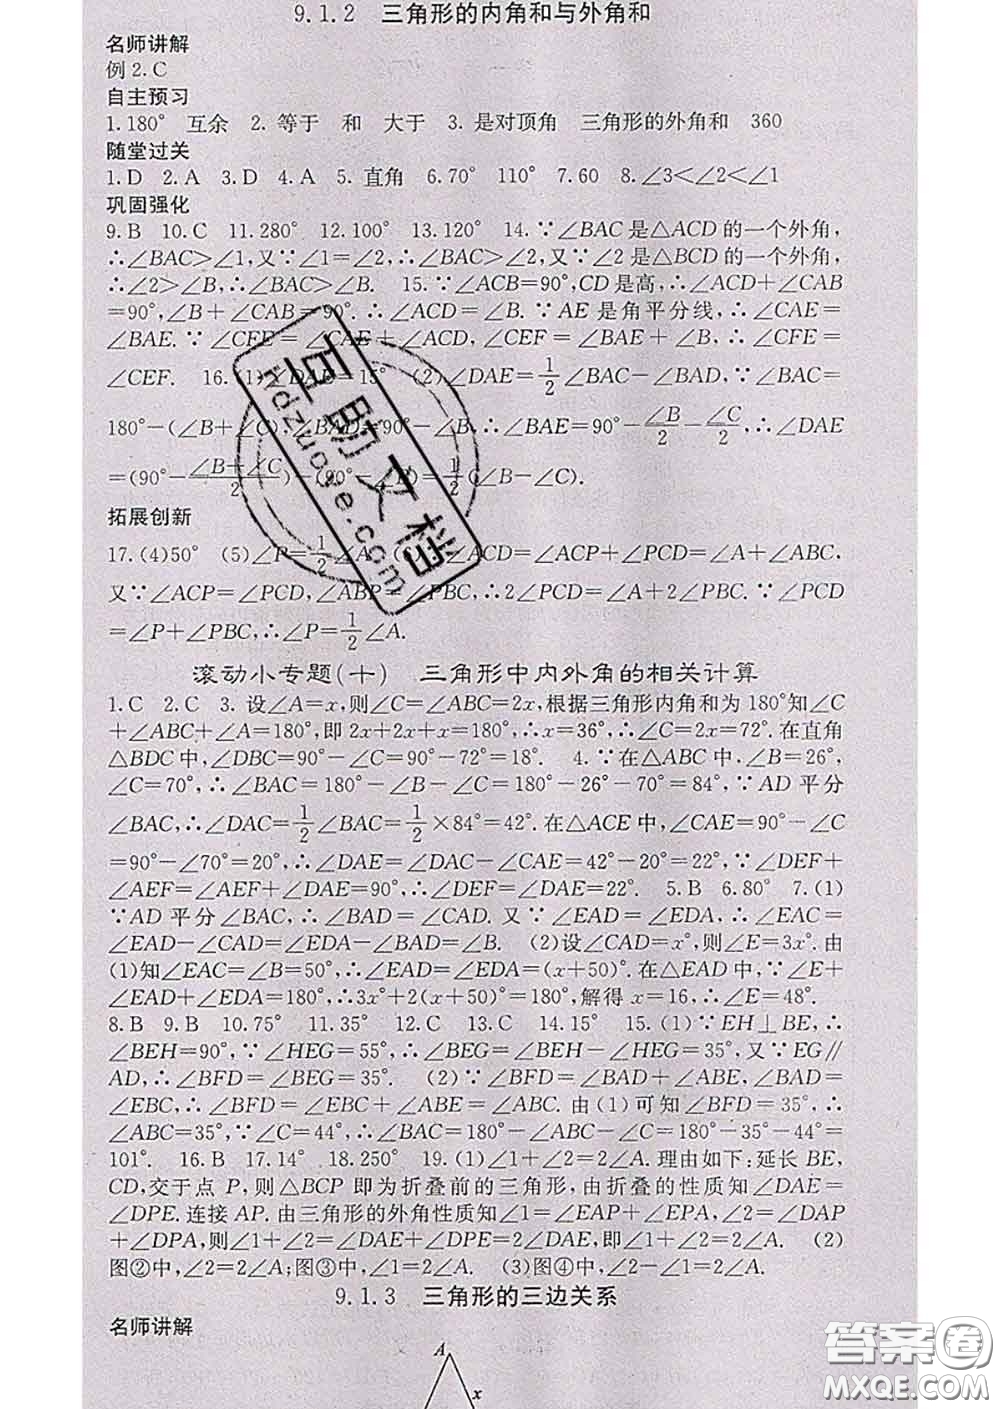 9.1.2 三角形的内角和与外角和
名师讲解
例2.C
自主预习
1.180° 互余 2.等于 和 大于 3.是对顶角 三角形的外角和 360
随堂过关
1.D 2.A 3.D 4.A 5.直角 6.70° 110° 7.60 8.∠3<∠2<∠1
巩固强化
9.B 10.C 11.280° 12.100° 13.120° 14.∵∠BAC是△ACD的一个外角,
∴∠BAC>∠1,又∵∠1=∠2,∴∠BAC>∠2,又∵∠2是△BCD的一个外角,
∴∠2>∠B,∴∠BAC>∠B. 15.∵∠ACB=90°,CD是高,∴∠ACD+∠CAB
=90°,∠B+∠CAB=90°.∴∠ACD=∠B.∵AE是角平分线,∴∠CAE=
∠BAE.∵∠CFE=∠CAE+∠ACD,∠CEF=∠BAE+∠B,∴∠CFE=
∠CEF. 16.(1)∠DAE=15° (2)∠DAE=1/2∠BAC-∠BAD,∵∠BAC=
180°-(∠B+∠C),∠BAD=90°-∠B,∴∠BAE=90°-∠B/2-∠C/2,∴∠DAE
=(90°-(∠B+∠C)/2)-(90°-∠B)=1/2(∠B-∠C).
拓展创新
17.(4)50° (5)∠P=1/2∠A ∠ACD=∠ACP+∠PCD=∠A+∠ABC,
又∵∠ACP=∠PCD,∠ABP=∠PBC,∴2∠PCD=∠A+2∠PBC.∵∠PCD
=∠P+∠PBC,∴∠P=1/2∠A.
滚动小专题(十) 三角形中内外角的相关计算
1.C 2.C 3.设∠A=x,则∠C=∠ABC=2x,根据三角形内角和为180°知∠C
+∠ABC+∠A=180°,即2x+2x+x=180°,∴x=36°,∴∠C=2x=72°.在直角
△BDC中,∠DBC=90°-∠C=90°-72°=18°. 4.∵在△ABC中,∠B=26°,
∠C=70°,∴∠BAC=180°-∠B-∠C=180°-26°-70°=84°,∵AD平分
∠BAC,∴∠DAC=1/2∠BAC=1/2×84°=42°.在△ACE中,∠CAE=90°-∠C
=90°-∠70°=20°,∴∠DAE=∠DAC-∠CAE=42°-20°=22°,∵∠DEF+
∠AEF=∠AEF+∠DAE=90°,∴∠DEF=∠DAE=22°. 5.B 6.80° 7.(1)
∵AD平分∠BAC,∴∠BAD=∠CAD.又∵∠EAD=∠EDA,∴∠EAC=
∠EAD-∠CAD=∠EDA-∠BAD=∠B. (2)设∠CAD=x°,则∠E=3x°.由
(1)知∠EAC=∠B=50°,∴∠EAD=∠EDA=(x+50)°.在△EAD中,∵∠E+
∠EAD+∠EDA=180°,∴3x°+2(x+50)°=180°,解得x=16,∴∠E=48°.
8.B 9.B 10.75° 11.35° 12.C 13.C 14.15° 15.(1)∵EH⊥BE,∴
∠BEH=90°,∵∠HEG=55°,∴∠BEG=∠BEH-∠HEG=35°,又∵EG∥
AD,∴∠BFD=∠BEG=35°. (2)∵∠BFD=∠BAD+∠ABE,∠BAD=
∠EBC,∴∠BFD=∠EBC+∠ABE=∠ABC.由(1)可知∠BFD=35°,∴
∠ABC=35°,∵∠C=44°,∴∠BAC=180°-∠ABC-∠C=180°-35°-44°=
101°. 16.B 17.14° 18.250° 19.(1)∠1+∠2=2∠A.理由如下:延长BE,
CD,交于点P,则△BCP即为折叠前的三角形,由折叠的性质知∠DAE=
∠DPE.连接AP.由三角形的外角性质知∠1=∠EAP+∠EPA,∠2=∠DAP
+∠DPA,则∠1+∠2=∠DAE+∠DPE=2∠DAE,即∠1+∠2=2∠A. (2)
图②中,∠2=2∠A;图③中,∠1=2∠A. (3)图④中,∠2-∠1=2∠A.
9.1.3 三角形的三边关系
名师讲解
A
x
答案圈
MXQE.COM